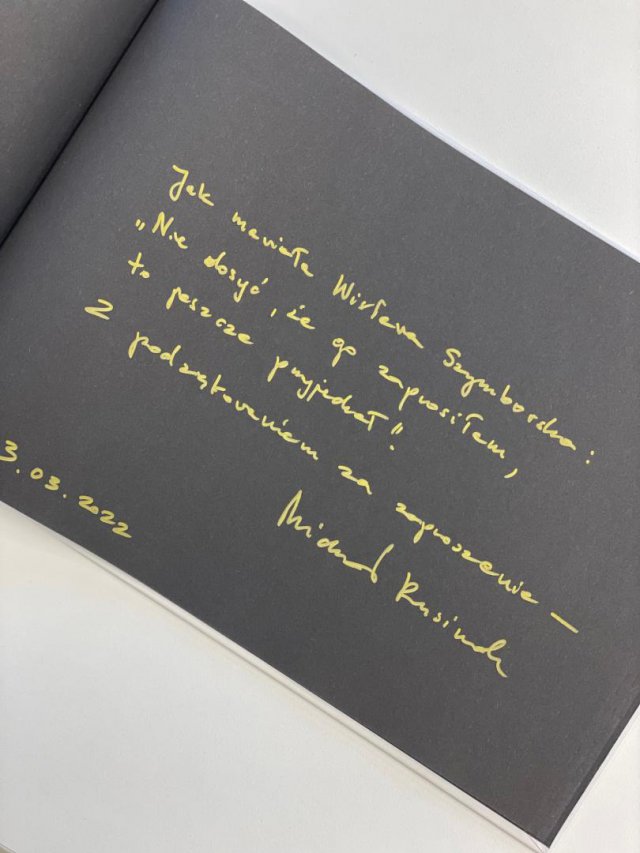 Jak mawiała Wisława Szymborska:
"Nie dosyć, że go zaprosiłam,
to jeszcze przyjechał".
Z podziękowaniem za zaproszenie —
Michał Rusinek
3.03.2022